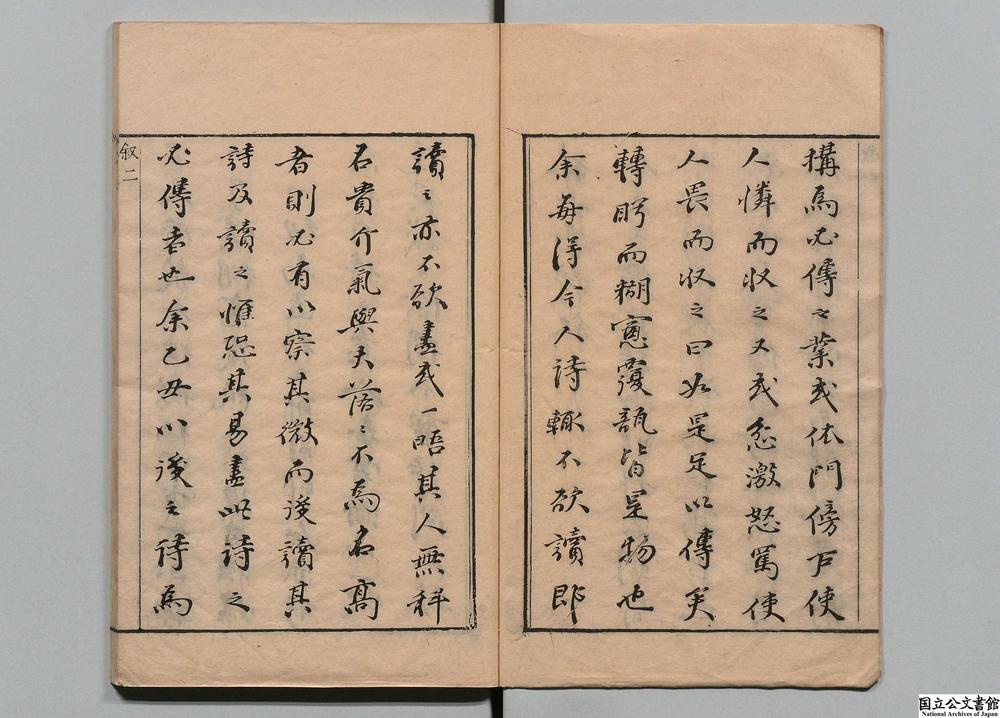 構為必傳之業或依門傍戶使
人憐而收之又或忿激怒罵使
人畏而收之曰如是足以傳矣
轉盻而糊窻覆瓿皆是物也
余每得今人詩輒不欲讀即
讀之亦不欲盡或一晤其人無科
名貴介氣與夫落落不為名高
者則必有以察其微而後讀其
詩及讀之惟恐其易盡此詩之
必傳者也余乙丑以後之詩為
叙二
国立公文書館
National Archives of Japan